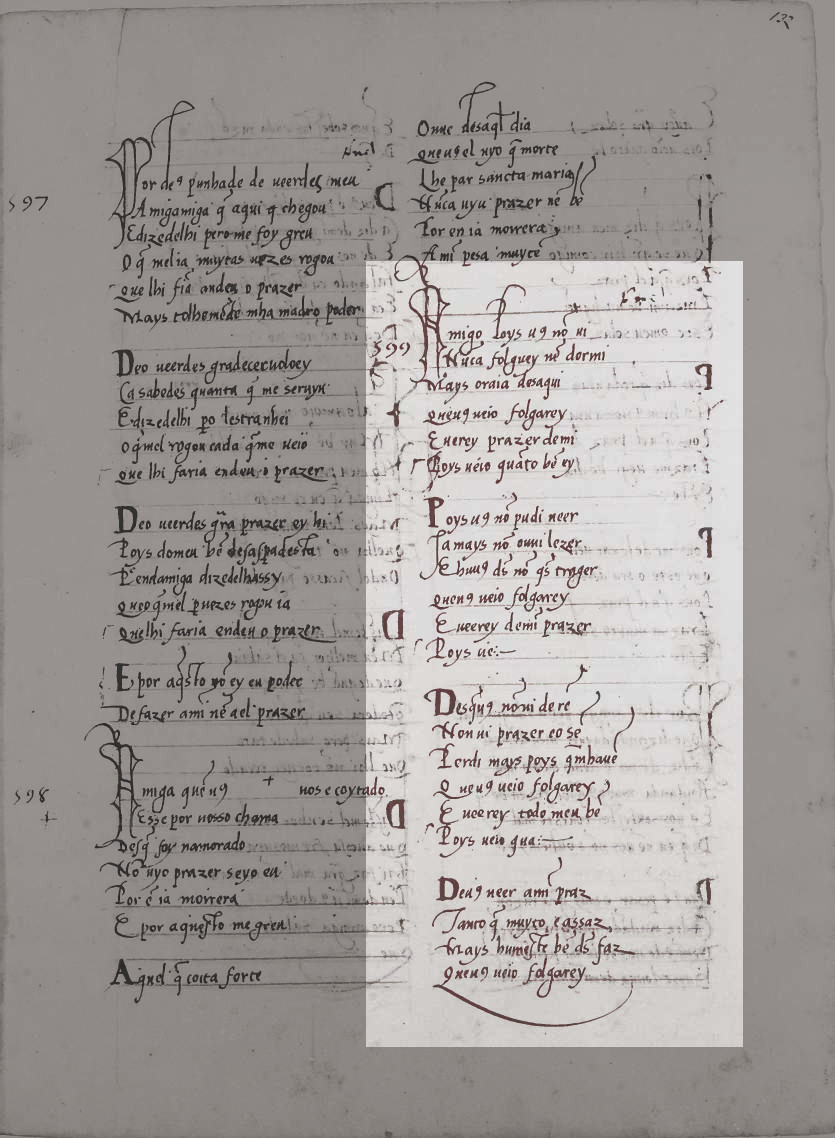 132
597
Por de9 punhade de ueerdes meu
Amigamiga q̃ aqui q̃ chegou
E dizedelhi pero me foy greu
O q̃ mel ia muytas uezes rogou
que lhi fia̅ endeu o prazer
Mays tolhemede mha madro poder
Deo ueerdes gradecer uoloey
Ca sabedes quanta q̃ me seruyu
E dizedelhi p̱o lestranhei
o q̃mel rogou cada q̃me ueio
que lhi faria endeu o prazer
Deo ueerdes gr̃a prazer ey hi
Poys domeu be̅
Pendamiga dizedelhassy
queoq̃mel p̱uezes rogou ia
quelhi faria endeu o prazer
E por aq̃sto no̅ ey eu poder
De fazer ami ne̅ ael prazer
598
Amiga que̅ u9 uos e coytado
E sse por uosso chama
Desq̃ foy namorado
No̅ uyo prazer seyo eu
Por e̅ ia moirera
E por aquesto me greu
Aquel q̃ coita forte
Ouue desaq̃l dia
que u9 el uyo q̃ morte
Lhe par sancta maria
Nu̅ca uyu prazer ne̅ be̅
Por en ia morrera
A mi̅ pesa muyte
599
Amigo Poys u9 no̅ ui
Nu̅ca folguey ne̅ dormi
Mays ora ia desaqui
queu9 ueio folgarey
E uerey prazer demi
Poys ueio qua̅to be̅ ey
Poys u9 no̅ pudi ueer
Ja mays no̅ ouui lezer
E huu9 ds̅ no̅ q̃s trager
queu9 ueio folgarey
E ueerey demi prazer
Poys ue:—
Desq̃u9 no̅ ui de re̅
Non ui prazer eo se̅
Perdi mays poys q̃mhaue̅
Queu9 ueio folgarey
E ueerey todo meu be̅
Poys ueio qua:—
Deu9 ueer a mi̅ praz
Tanto q̃ muyto e assaz
Mays hu meste be̅ ds̅ faz
Queu9 ueio folgarey